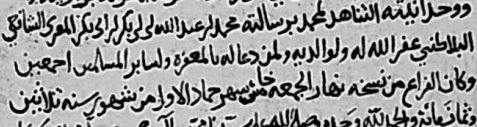 ووحدانيته الشاهد لمحمد برسالته محمد بن عبد الله بن ابي بكر بن ابي بكر المقري الشافعي
البلاطنسي غفر الله له ولوالديه ولمن دعا له بالمغفرة ولساير المسلمين اجمعين
وكان الفراغ من نسخه نهار الجمعه خامس شهر جماد الاول من شهور سنه ثلاثين
وثمانمائة والحمد لله وحده وصلى الله على